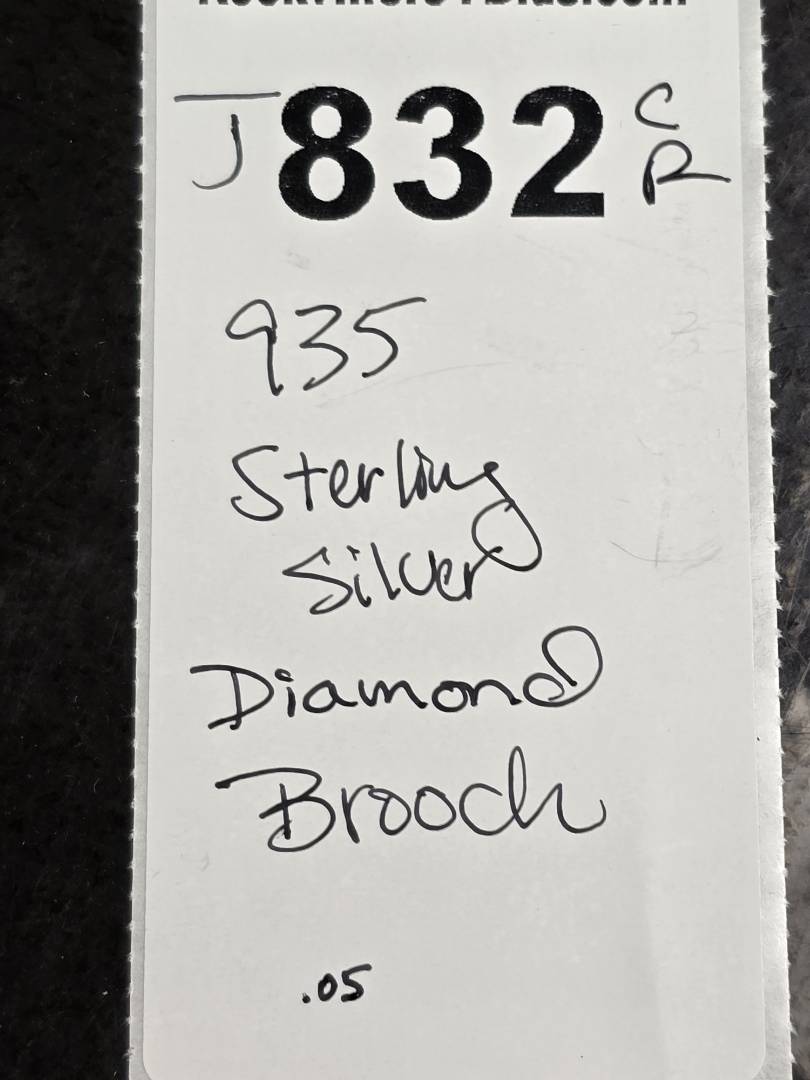 J832 C
R
935
Sterling
Silver
Diamond
Brooch
.05